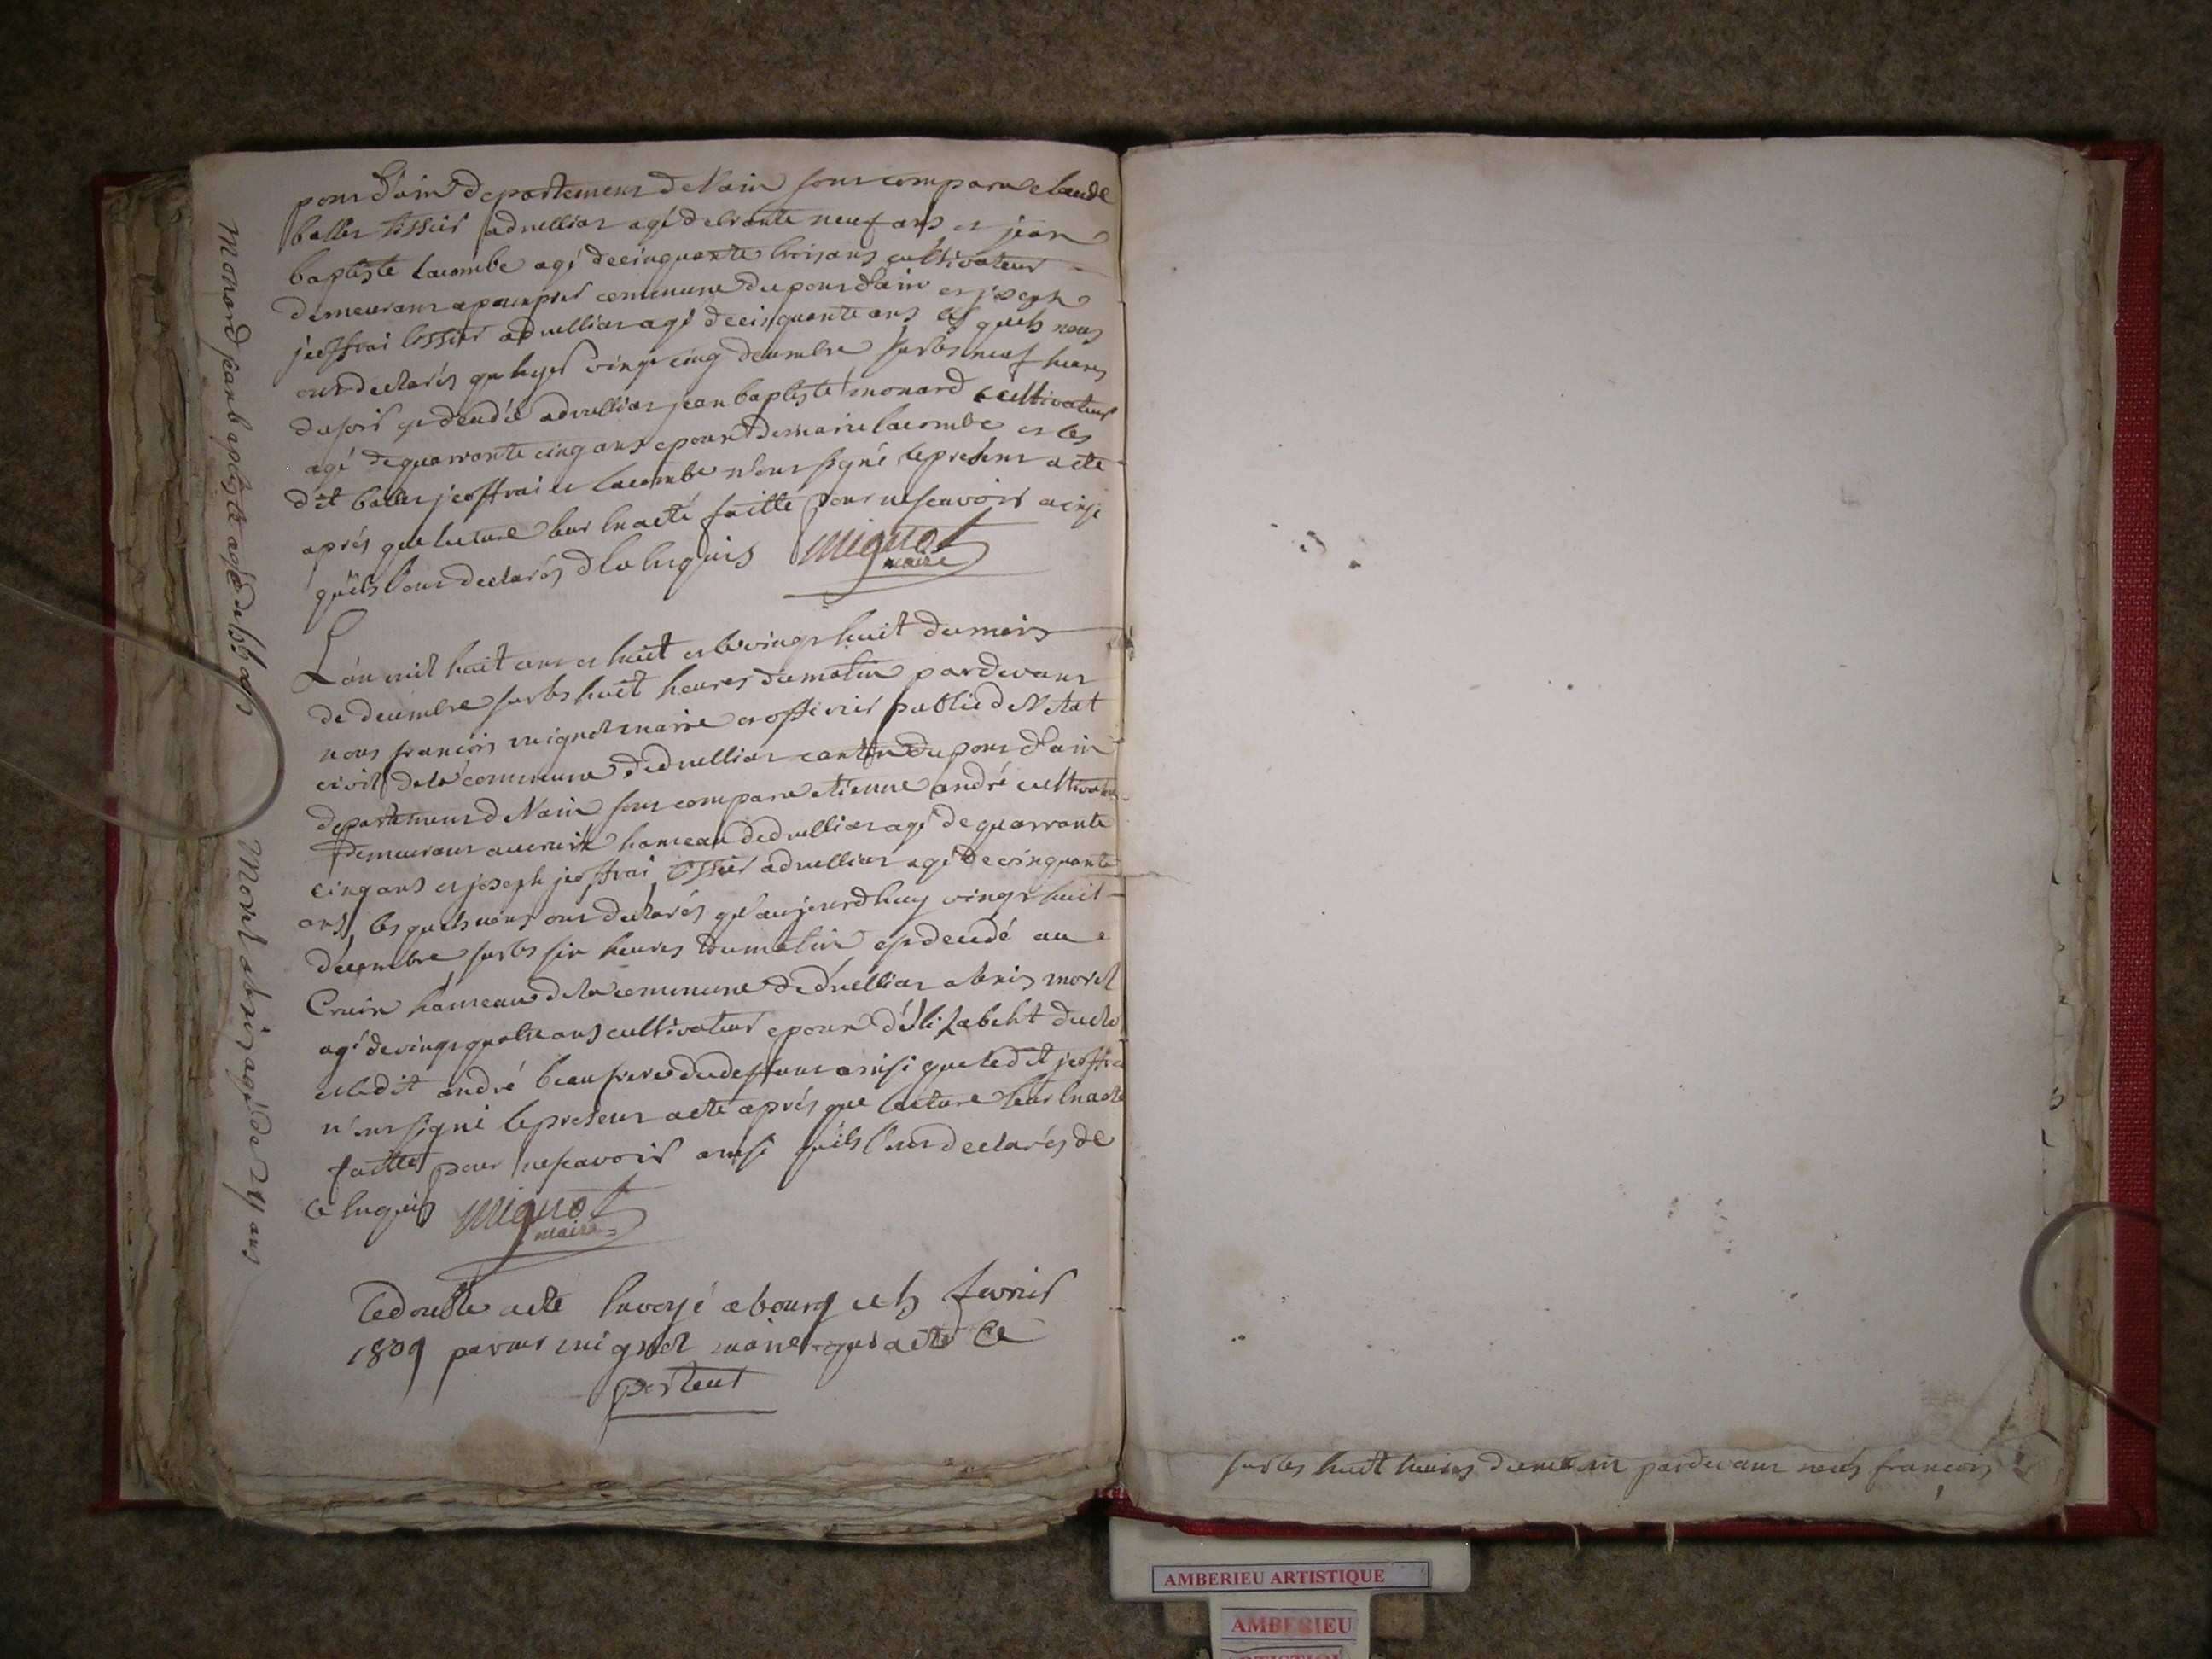 pont d'ain departement de l'ain sont comparu claude
ballet tissier a druilliat agé de trante neuf ans et jean
baptiste lacombe agé de cinquante trois ans cultivateur
demeurant a commune du pont d'ain et joseph
jeoffrai tissier a druilliat agé de cinquante ans les quels nous
ont declarés qu'hyer vingt cinq decembre sur les neuf heures
du soir est deudée a druilliat jean baptiste monard cultivateur
agé de quarrante cinq ans epoux de marie lacombe et les
dit ballet jeoffrai et lacombe n'ont signé le present acte
aprés que lecture leur en a eté faitte pour ne scavoir ainsi
qu'ils l'ont declarés de ce enquis mignot
maire
L'an mil huit cent et huit et le vingt huit du mois
de decembre sur les huit heures du matin pardevant
nous françois mignot maire et officier public de l'etat
civil de la commune de druilliat canton du pont d'ain
departement de l'ain sont comparu etienne andré cultivateur
demeurant au cruix hameau de druilliat agé de quarrante
cinq ans et joseph jeoffrai tissier a druilliat agé de cinquante
ans les quels nous ont declarés qu'aujourd'huy vingt huit
decembre sur les six heures du matin est decedé au
Cruix hameau de la commune de druilliat morel
agé de vingt quatre ans cultivateur epoux d'élizabeht
et ledit andré beaufrere du deffunt ainsi que ledit jeoffrai
n'ont signé le present acte aprés que lecture leur en a eté
faitte pour ne scavoir ainsi qu'ils l'ont declarés de
ce enquis mignot
maire
Le double acte envoyé a bourg le 5 fevrier
1809 par mignot maire acte
porteur
monard jean baptiste agé de 45 ans
Morel agé de 24 ans
sur les huit heures du matin pardevant nous françois
AMBERIEU ARTISTIQUE
AMBERIEU
ARTISTIQUE